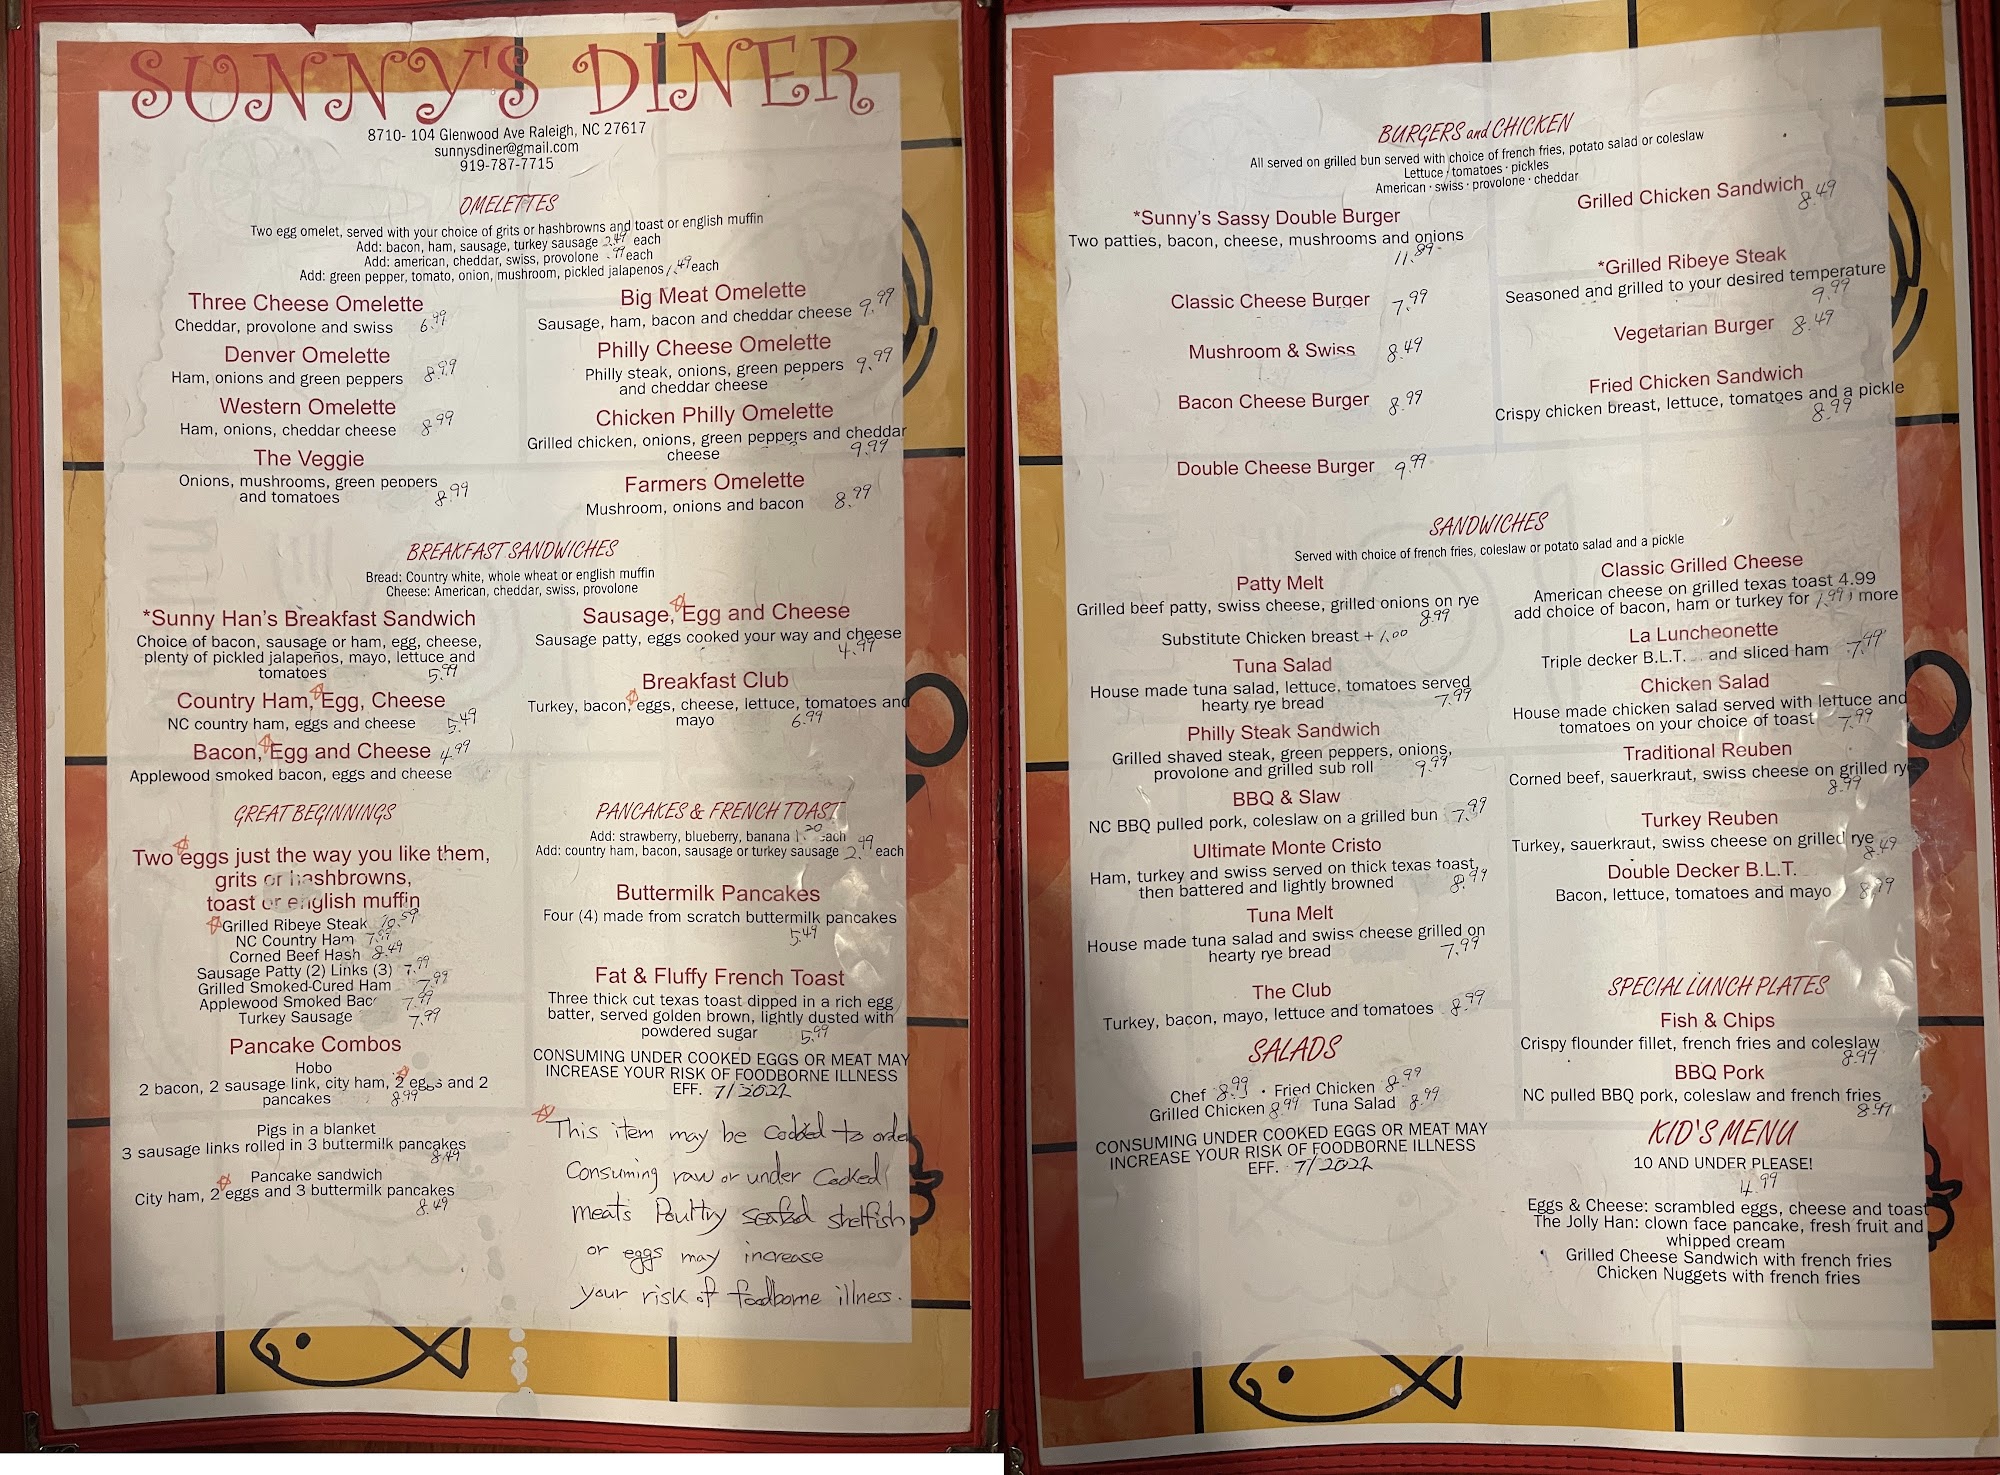 SUNNY'S DINER
8710- 104 Glenwood Ave Raleigh, NC 27617
sunnysdiner@gmail.com
919-787-7715
OMELETTES
Two egg omelet, served with your choice of grits or hashbrowns and toast or english muffin
Add: bacon, ham, sausage, turkey sausage 2.49 each
Add: american, cheddar, swiss, provolone .99 each
Add: green pepper, tomato, onion, mushroom, pickled jalapenos 1.49 each
Three Cheese Omelette
Cheddar, provolone and swiss 6.99
Denver Omelette
Ham, onions and green peppers 8.99
Western Omelette
Ham, onions, cheddar cheese 8.99
The Veggie
Onions, mushrooms, green peppers
and tomatoes 8.99
Big Meat Omelette
Sausage, ham, bacon and cheddar cheese 9.99
Philly Cheese Omelette
Philly steak, onions, green peppers 9.99
and cheddar cheese
Chicken Philly Omelette
Grilled chicken, onions, green peppers and cheddar
cheese 9.99
Farmers Omelette
Mushroom, onions and bacon 8.99
BREAKFAST SANDWICHES
Bread: Country white, whole wheat or english muffin
Cheese: American, cheddar, swiss, provolone
*Sunny Han's Breakfast Sandwich
Choice of bacon, sausage or ham, egg, cheese,
plenty of pickled jalapeños, mayo, lettuce and
tomatoes 5.99
Country Ham, Egg, Cheese
NC country ham, eggs and cheese 5.49
Bacon, Egg and Cheese 4.99
Applewood smoked bacon, eggs and cheese
Sausage, Egg and Cheese
Sausage patty, eggs cooked your way and cheese
4.99
Breakfast Club
Turkey, bacon, eggs, cheese, lettuce, tomatoes and
mayo 6.99
GREAT BEGINNINGS
Two eggs just the way you like them,
grits or hashbrowns,
toast or english muffin
Grilled Ribeye Steak 10.59
NC Country Ham 7.99
Corned Beef Hash 8.49
Sausage Patty (2) Links (3) 7.99
Grilled Smoked-Cured Ham 7.99
Applewood Smoked Bac 7.99
Turkey Sausage 7.99
Pancake Combos
Hobo
2 bacon, 2 sausage link, city ham, 2 eggs and 2
pancakes 8.99
Pigs in a blanket
3 sausage links rolled in 3 buttermilk pancakes
8.49
Pancake sandwich
City ham, 2 eggs and 3 buttermilk pancakes
8.49
PANCAKES & FRENCH TOAST
Add: strawberry, blueberry, banana 1.20 each
Add: country ham, bacon, sausage or turkey sausage 2.49 each
Buttermilk Pancakes
Four (4) made from scratch buttermilk pancakes
5.49
Fat & Fluffy French Toast
Three thick cut texas toast dipped in a rich egg
batter, served golden brown, lightly dusted with
powdered sugar 5.99
CONSUMING UNDER COOKED EGGS OR MEAT MAY
INCREASE YOUR RISK OF FOODBORNE ILLNESS
EFF. 7/2022
This item may be Cooked to order
Consuming raw or under Cooked
meats Poultry seafood shelfish
or eggs may increase
your risk of foodborne illness.
BURGERS and CHICKEN
All served on grilled bun served with choice of french fries, potato salad or coleslaw
Lettuce / tomatoes · pickles
American · swiss · provolone · cheddar
*Sunny's Sassy Double Burger
Two patties, bacon, cheese, mushrooms and onions
11.89
Classic Cheese Burger 7.99
Mushroom & Swiss 8.49
Bacon Cheese Burger 8.99
Double Cheese Burger 9.99
Grilled Chicken Sandwich 8.49
*Grilled Ribeye Steak
Seasoned and grilled to your desired temperature
9.99
Vegetarian Burger 8.49
Fried Chicken Sandwich
Crispy chicken breast, lettuce, tomatoes and a pickle
8.99
SANDWICHES
Served with choice of french fries, coleslaw or potato salad and a pickle
Patty Melt
Grilled beef patty, swiss cheese, grilled onions on rye
8.99
Substitute Chicken breast + 1.00
Tuna Salad
House made tuna salad, lettuce, tomatoes served
hearty rye bread 7.99
Philly Steak Sandwich
Grilled shaved steak, green peppers, onions,
provolone and grilled sub roll 9.99
BBQ & Slaw
NC BBQ pulled pork, coleslaw on a grilled bun 7.99
Ultimate Monte Cristo
Ham, turkey and swiss served on thick texas toast,
then battered and lightly browned 8.99
Tuna Melt
House made tuna salad and swiss cheese grilled on
hearty rye bread 7.99
The Club
Turkey, bacon, mayo, lettuce and tomatoes 8.99
Classic Grilled Cheese
American cheese on grilled texas toast 4.99
add choice of bacon, ham or turkey for 1.99 more
La Luncheonette
Triple decker B.L.T. and sliced ham 7.49
Chicken Salad
House made chicken salad served with lettuce and
tomatoes on your choice of toast 7.99
Traditional Reuben
Corned beef, sauerkraut, swiss cheese on grilled rye
8.99
Turkey Reuben
Turkey, sauerkraut, swiss cheese on grilled rye
8.49
Double Decker B.L.T.
Bacon, lettuce, tomatoes and mayo
SALADS
Chef 8.99 · Fried Chicken 8.99
Grilled Chicken 8.99 Tuna Salad 8.99
CONSUMING UNDER COOKED EGGS OR MEAT MAY
INCREASE YOUR RISK OF FOODBORNE ILLNESS
EFF. 7/2022
SPECIAL LUNCH PLATES
Fish & Chips
Crispy flounder fillet, french fries and coleslaw
8.99
BBQ Pork
NC pulled BBQ pork, coleslaw and french fries
8.99
KID'S MENU
10 AND UNDER PLEASE!
4.99
Eggs & Cheese: scrambled eggs, cheese and toast
The Jolly Han: clown face pancake, fresh fruit and
whipped cream
Grilled Cheese Sandwich with french fries
Chicken Nuggets with french fries